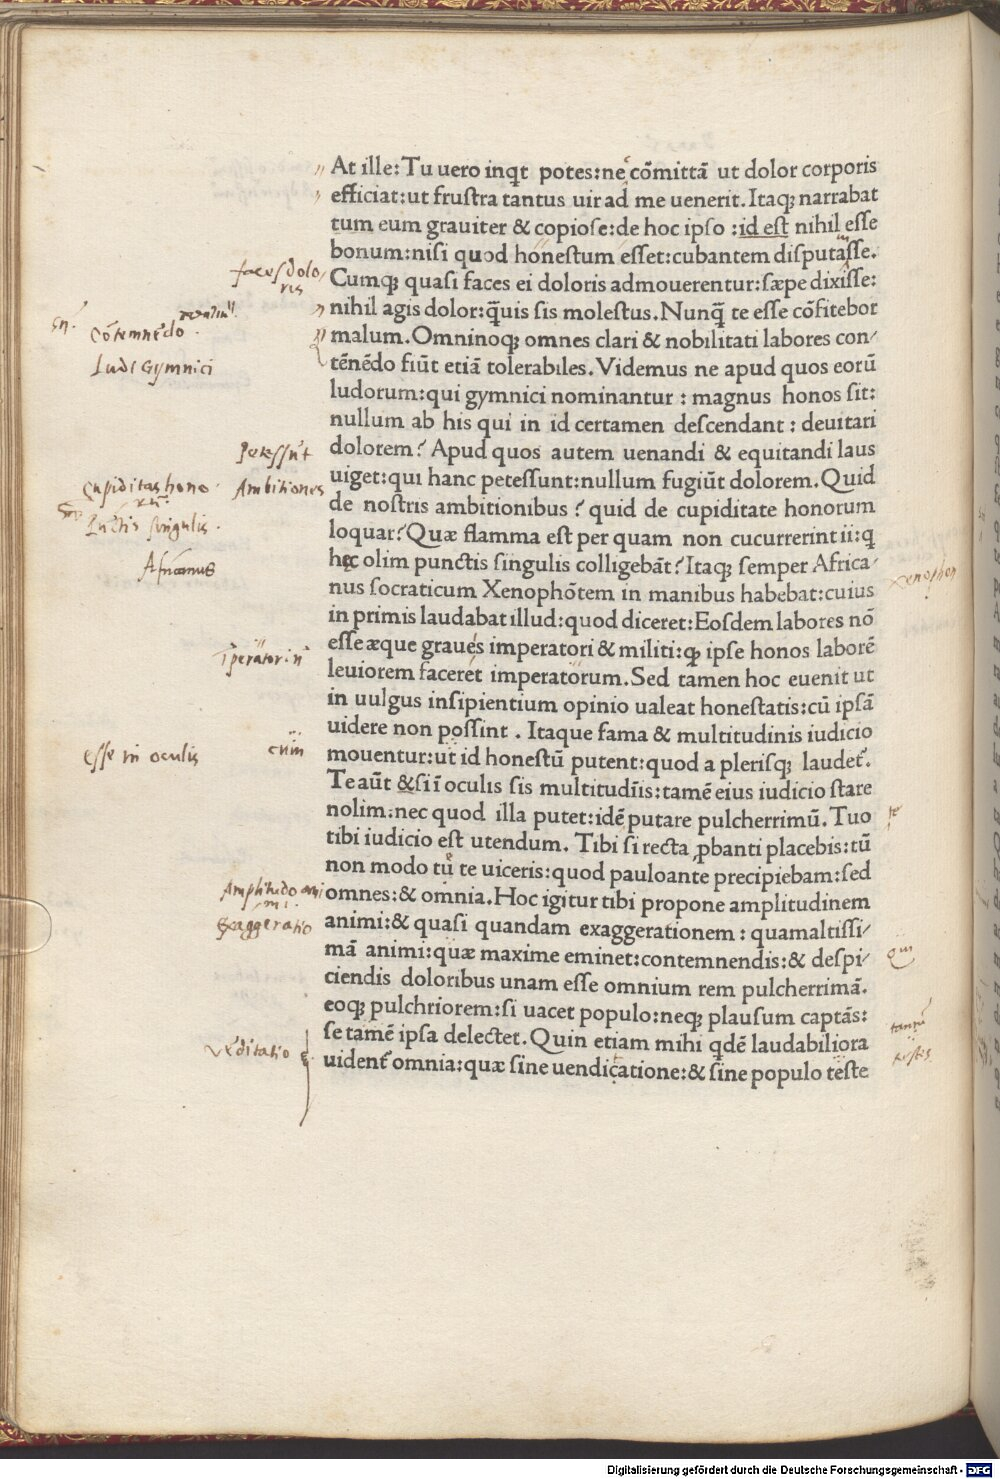 At ille: Tu uero inqt potes: ne cōmittā ut dolor corporis
efficiat: ut frustra tantus uir ad me uenerit. Itaq; narrabat
tum eum grauiter & copiose: de hoc ipso : id est nihil esse
bonum: nisi quod honestum esset: cubantem disputasse.
faces dolo
ris
Cumq; quasi faces ei doloris admouerentur: sæpe dixisse:
nihil agis dolor: q̄uis sis molestus. Nunq̄ te esse cōfitebor
malum. Omninoq; omnes clari & nobilitati labores con-
Cōtemnēdo
Ludi Gymnici
tēnēdo fiūt etiā tolerabiles. Videmus ne apud quos eorū
ludorum: qui gymnici nominantur : magnus honos sit:
nullum ab his qui in id certamen descendant : deuitari
dolorem? Apud quos autem uenandi & equitandi laus
Petessūt
uiget: qui hanc petessunt: nullum fugiūt dolorem. Quid
Cupiditas hono
Ambitiones
de nostris ambitionibus ? quid de cupiditate honorum
Pūctis singulis.
loquar? Quæ flamma est per quam non cucurrerint ii: q
Africanus
hęc olim punctis singulis colligebāt? Itaq; semper Africa-
Xenophon
nus socraticum Xenophōtem in manibus habebat: cuius
in primis laudabat illud: quod diceret: Eosdem labores nō
esse æque graues imperatori & militi: ꝙ ipse honos laborē
leuiorem faceret imperatorum. Sed tamen hoc euenit ut
in uulgus insipientium opinio ualeat honestatis: cū ipsā
uidere non possint . Itaque fama & multitudinis iudicio
esse in oculis
mouentur: ut id honestū putent: quod a plerisq; laudet᷑.
Te aūt & si ī oculis sis multitudīs: tamē eius iudicio stare
nolim: nec quod illa putet: idē putare pulcherrimū. Tuo
te
tibi iudicio est utendum. Tibi si recta ꝓbanti placebis: tū
non modo tu te uiceris: quod pauloante precipiebam: sed
Amplitudo ani
mi.
omnes: & omnia. Hoc igitur tibi propone amplitudinem
Exaggeratio
animi: & quasi quandam exaggerationem : quamaltissi-
mā animi: quæ maxime eminet: contemnendis: & despi-
ciendis doloribus unam esse omnium rem pulcherrimā.
eoq; pulchriorem: si uacet populo: neq; plausum captās:
se tamē ipsa delectet. Quin etiam mihi qdē laudabiliora
Vēditatio
uident᷑ omnia: quæ sine uendicatione: & sine populo teste
Digitalisierung gefördert durch die Deutsche Forschungsgemeinschaft - DFG